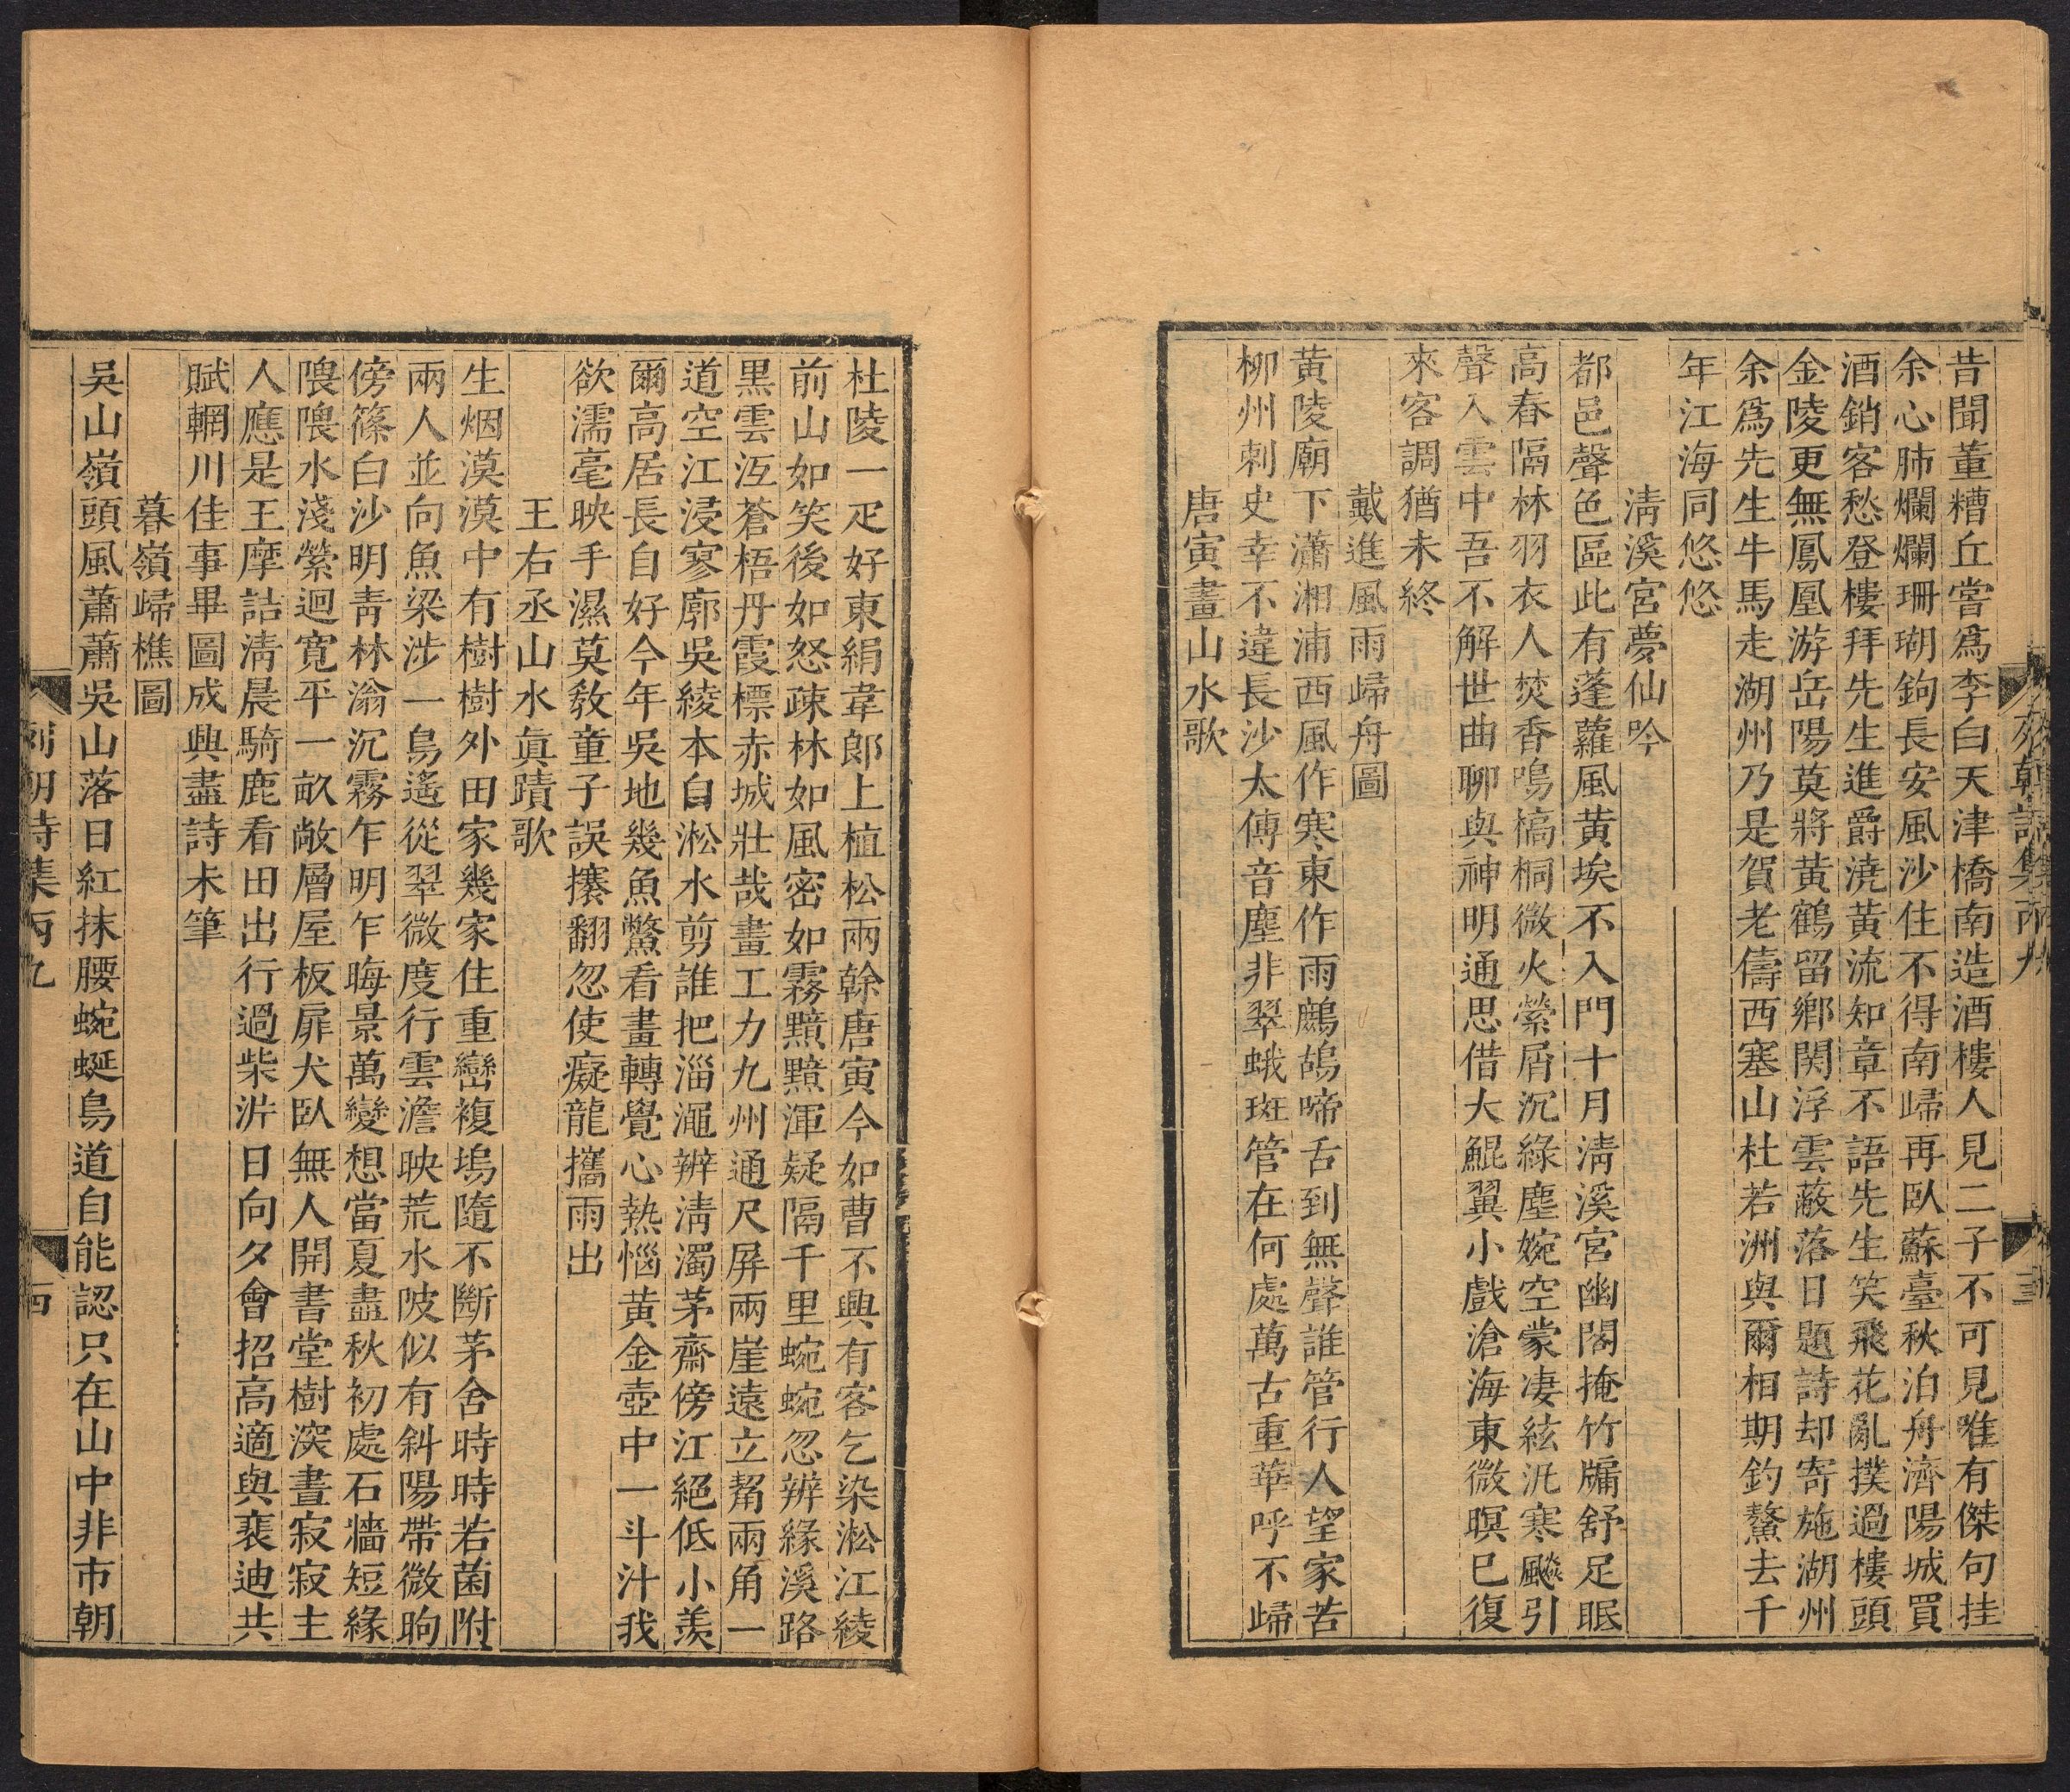 昔聞董糟丘嘗爲李白天津橋南造酒樓人見二子不可見唯有傑句挂
余心肺爛爛珊瑚鉤長安風沙住不得南歸再臥蘇臺秋泊舟濟陽城買
酒銷客愁登樓拜先生進爵澆黃流知章不語先生笑飛花亂撲過樓頭
金陵更無鳳凰游岳陽莫將黃鶴留鄉関浮雲蔽落日題詩却寄施湖州
余爲先生牛馬走湖州乃是賀老儔西塞山杜若洲與爾相期釣鰲去千
年江海同悠悠
淸溪宮夢仙吟
都邑聲色區此有蓬蘿風黄埃不入門十月淸溪宮幽閣掩竹牖舒足眠
高舂隔林羽衣人焚香鳴槁桐微火縈屑沉綠塵婉空蒙凄絃汎寒飈引
聲入雲中吾不解世曲聊與神明通思借大鯤翼小戲滄海東微暝已復
來客調猶未終
戴進風雨歸舟圖
黄陵廟下瀟湘浦西風作寒東作雨鷓鴣啼舌到無聲誰管行人望家苦
柳州刺史幸不違長沙太傅音塵非翠蛾斑管在何處萬古重華呼不歸
唐寅畫山水歌
杜陵一疋好東絹韋郞上植松兩榦唐寅今如曹不興有客乞染淞江綾
前山如笑後如怒疎林如風密如霧黯黯渾疑隔千里蜿蜿忽辨緣溪路
黒雲沍蒼梧丹霞標赤城壯哉畫工力九州通尺屏兩崖遠立觜兩角一
道空江浸寥廓吳綾本自淞水剪誰把淄澠辨淸濁茅齋傍江絕低小羨
爾高居長自好今年吳地幾魚鱉看畫轉覺心熱惱黄金壺中一斗汁我
欲濡毫映手濕莫敎童子誤攓翻忽使癡龍攜雨出
王右丞山水眞蹟歌
生烟漠漠中有樹樹外田家幾家住重巒複塢隨不斷茅舍時時若菌附
兩人並向魚梁涉一鳥遙從翠微度行雲澹映荒水陂似有斜陽帶微昫
傍篠白沙明靑林滃沉霧乍明乍晦景萬變想當夏盡秋初處石牆短緣
隈隈水淺縈迴寬平一畝敞層屋板扉犬臥無人開書堂樹深晝寂寂主
人應是王摩詰淸晨騎鹿看田出行過柴泮日向夕會招高適與裴迪共
賦輞川佳事畢圖成興盡詩未筆
暮嶺歸樵圖
吳山嶺頭風蕭蕭吳山落日紅抹腰蜿蜒鳥道自能認只在山中非市朝